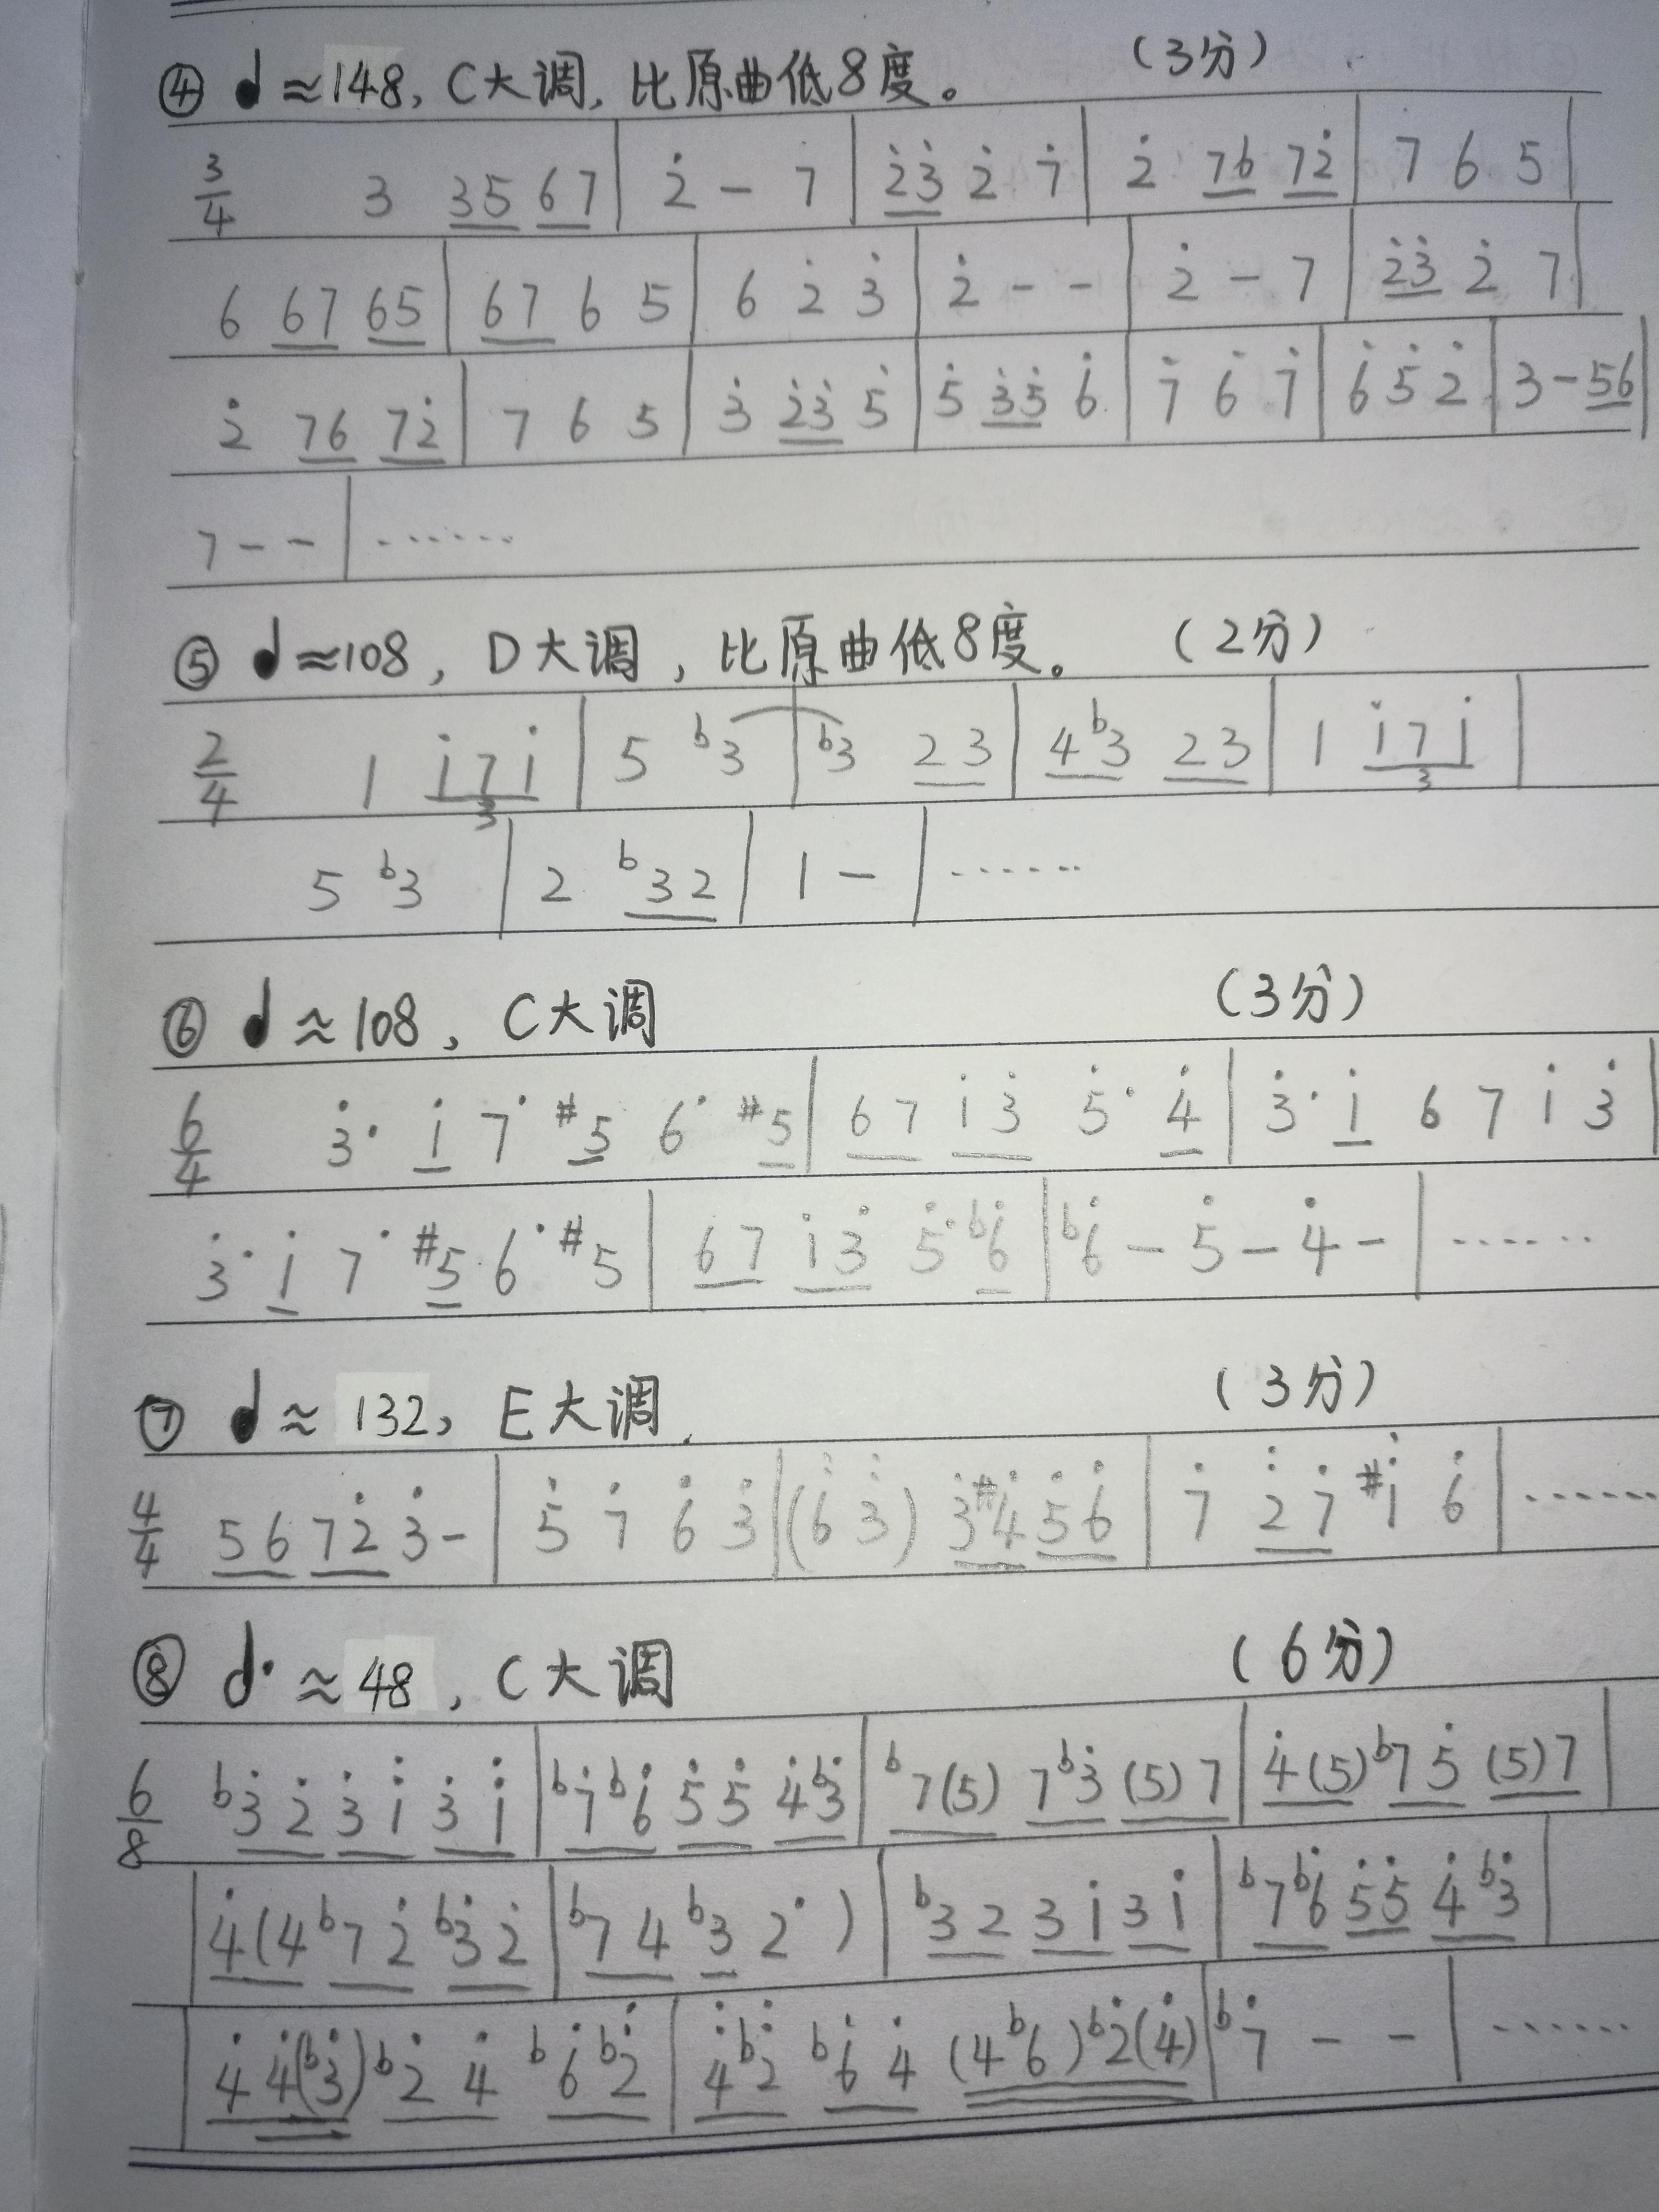 ④ ♩≈148, C大调, 比原曲低8度。 (3分)
3/4 3 35 67 | 2̇ - 7 | 2̇3̇ 2̇ 7̇ | 2̇ 76 72̇ | 7 6 5 |
6 67 65 | 67 6 5 | 6 2̇ 3̇ | 2̇ - - | 2̇ - 7 | 2̇3̇ 2̇ 7 |
2̇ 76 72̇ | 7 6 5 | 3̇ 2̇3̇ 5̇ | 5̇ 3̇5̇ 6̇ | 7̇ 6̇ 7̇ | 6̇ 5̇ 2̇ | 3 - 56 |
7 - - | ······
⑤ ♩≈108, D大调, 比原曲低8度。 (2分)
2/4 1 1̇71̇ 3 | 5 b3 | b3 23 | 4b3 23 | 1 1̇71̇ 3 |
5 b3 | 2 b32 | 1 - | ······
⑥ ♩≈108, C大调 (3分)
6/4 3̇· 1̇ 7· #5 6· #5 | 67 1̇3̇ 5̇· 4̇ | 3̇· 1̇ 6 7 1̇ 3̇ |
3̇· 1̇ 7· #5 6· #5 | 67 1̇3̇ 5̇· b6̇ | b6̇ - 5̇ - 4̇ - | ······
⑦ ♩≈132, E大调. (3分)
4/4 56 72̇ 3̇ - | 5̇ 7̇ 6̇ 3̇ | (6̇ 3̇) 3̇#4̇ 5̇6̇ | 7̇ 2̈7̇ #1̈ 6̇ | ······
⑧ ♩.≈48, C大调 (6分)
6/8 b3̇2̇ 3̇1̈ 3̇1̈ | b7̇b6̇ 5̇5̇ 4̇b3̇ | b7(5) 7b3̇ (5)7 | 4̇(5) b75̇ (5)7 |
4̇(4 b72̇ b3̇2̇ | b74 b3 2·) | b32 31̇ 31̇ | b7b6̇ 5̇5̇ 4̇b3̇ |
4̇ 4̇(b3̇) b2̇ 4̇ b6̇b2̈ | 4̈b2̈ b6̇4̇ (4b6)b2̇(4̇) | b7̇ - - | ······